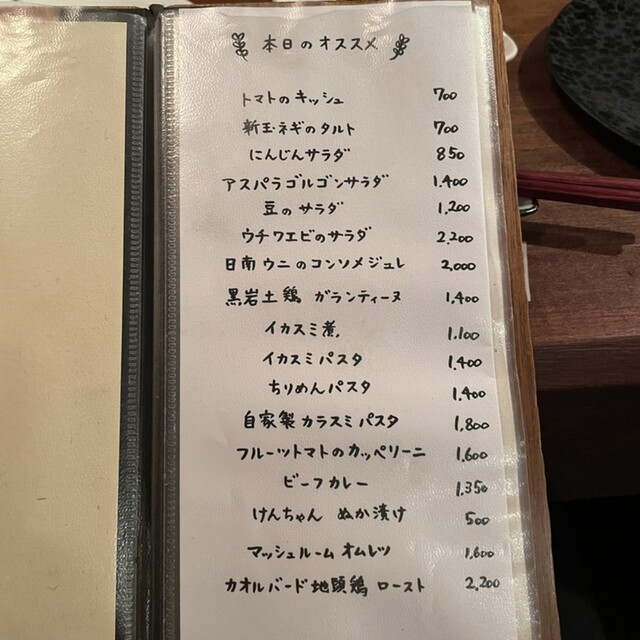 本日のオススメ
トマトのキッシュ 700
新玉ネギのタルト 700
にんじんサラダ 850
アスパラゴルゴンサラダ 1,400
豆のサラダ 1,200
ウチワエビのサラダ 2,200
日南ウニのコンソメジュレ 2,000
黒岩土鶏 ガランティーヌ 1,400
イカスミ煮 1,100
イカスミパスタ 1,400
ちりめんパスタ 1,400
自家製カラスミパスタ 1,800
フルーツトマトのカッペリーニ 1,600
ビーフカレー 1,350
けんちゃん ぬか漬け 500
マッシュルームオムレツ 1,600
カオルバード地頭鶏 ロースト 2,200